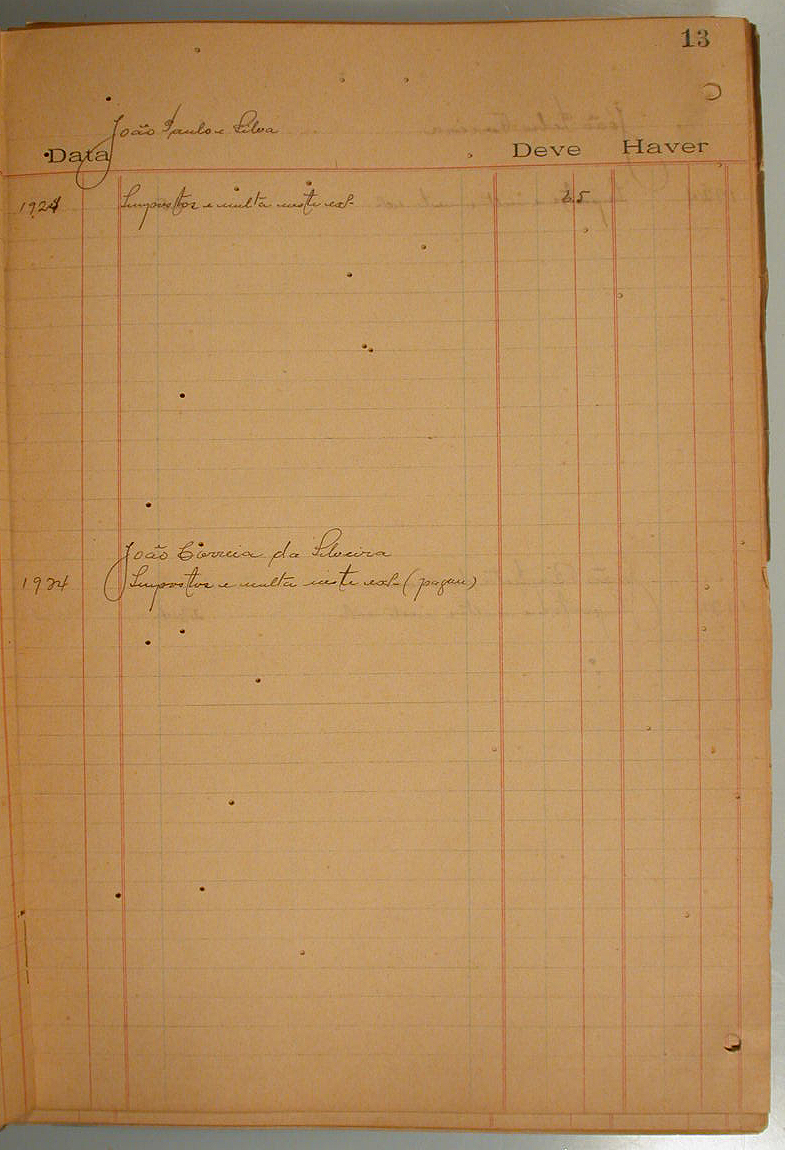 13
João Paulo e Silva
Data Deve Haver
1924 Impostos e multa neste ex.
João Correia da Silveira
1924 Impostos e multa neste ex. (pagou)